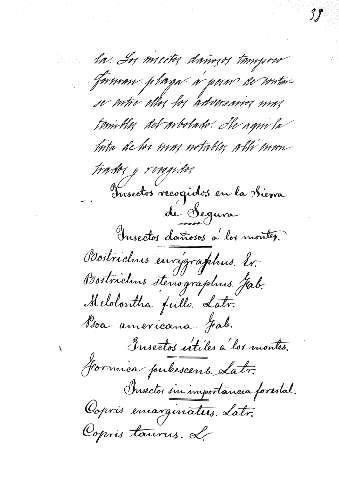 38
la. Los insectos dañosos tampoco
forman plaga á pesar de contar-
se entre ellos los adversarios mas
temibles del arbolado. He aqui la
lista de los mas notables alli encon-
trados y recogidos
Insectos recogidos en la Sierra
de Segura
Insectos dañosos á los montes.
Bostrichus eurygraphus. Er.
Bostrichus stenographus. Fab.
Melolontha fullo. Latr.
Boa americana Fab.
Insectos útiles á los montes.
Formica pubescens. Latr.
Insectos sin importancia forestal.
Copris emarginatus. Latr.
Copris taurus. L.